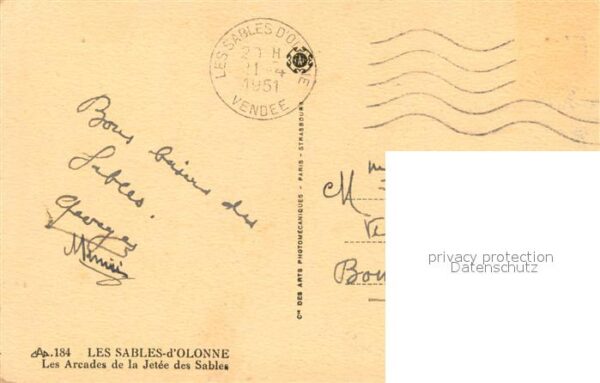 LES SABLES D'OLONNE
20 H
21-4
1951
VENDEE
Bons baisers des
Sables.
Georges
Mimi
Cie DES ARTS PHOTOMÉCANIQUES - PARIS - STRASBOURG
M
Bou
privacy protection
Datenschutz
184 LES SABLES-d'OLONNE
Les Arcades de la Jetée des Sables